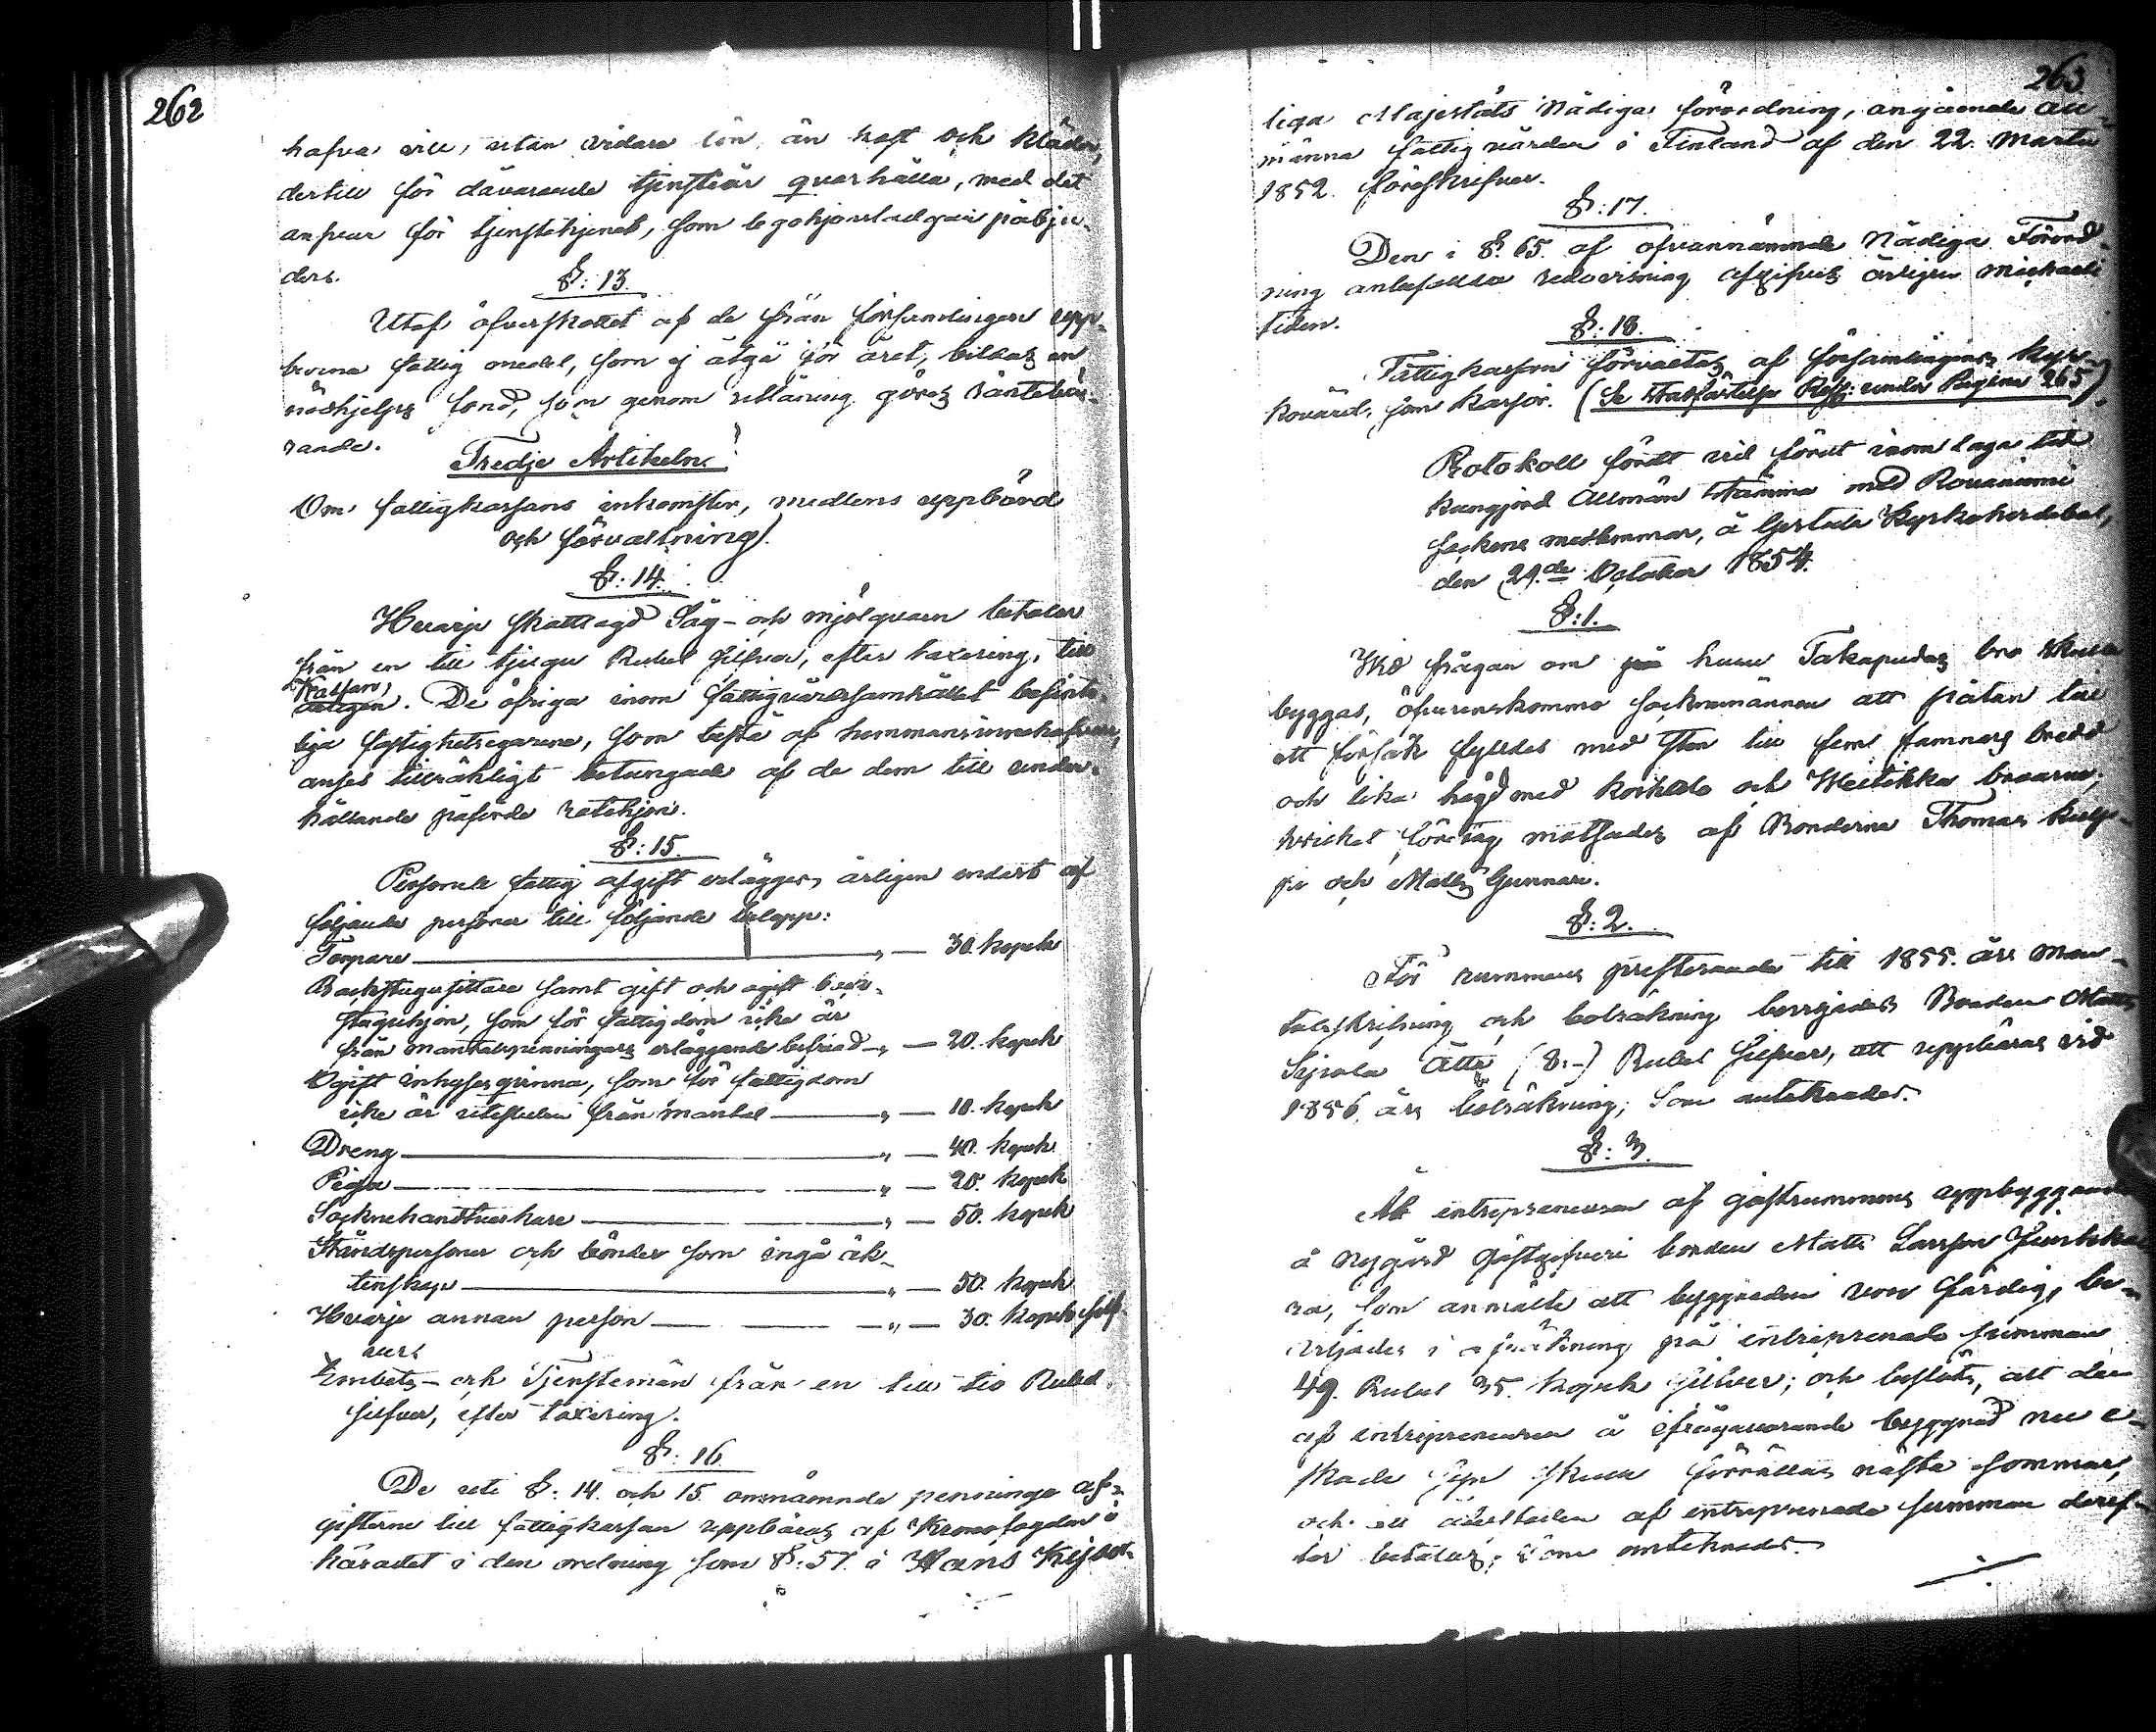 262
hafva vill, utan vidare lön än kost och kläder,
dertill för dåvarande tjenstår qvarhålla, med det
ansvar för tjenstehjonet, som legohjonstadgan påbju-
der.
§: 13.
Utaf öfverskottet af de från församlingen upp-
burna fattig medel, som ej åtgå för året, bildas en
nödhjelps fond, som genom utlåning göres räntebä-
rande.
Tredje Artikeln.
Om fattigkassans inkomster, medlens uppbörd
och förvaltning.
§: 14.
Hvarje skattlagd Såg- och mjölqvarn betalar
från en till tjugu Rubel Silfver, efter taxering, till
Kassan. De öfriga inom fattigvårdssamhället befint-
liga fastighetsegarena, som bestå af hemmansinnehafvare,
anses tillräkligt betungade af de dem till under-
hållande påförde rotehjon.
§: 15.
Personele fattig afgift erlägges årligen endast af
följande personer till följande belopp:
Torpare — „ — 30. kopek
Backstugusittare samt gift och ogift back-
stuguhjon, som för fattigdom icke är
från mantalspenningars erläggande befriad „ — 20. kopek
Ogift inhysesqvinna, som för fattigdom
icke är utesluten från mantal — „ — 10. kopek
Dreng — „ — 40. kopek
Piga — „ — 20. kopek
Socknehandtverkare — „ — 50. kopek
Ståndspersoner och bönder som ingå äk-
tenskap — „ — 50. kopek
Hvarje annan person — „ — 30. kopek silf-
vers
Embets- och Tjenstemän från en till tio Rubel
silfver, efter taxering.
§: 16.
De uti §: 14. och 15. omnämnde penninge af-
gifterne till fattigkassan uppbäras af Kronofogden i
häradet i den ordning som §: 57. i Hans Kejser-
263
liga Majestäts Nådiga förordning, angående all-
männa fattigvården i Finland af den 22. Martii
1852. föreskrifver.
§: 17.
Den i §. 65. af ofvannämnde Nådiga Förord-
ning anbefallda redovisning afgifves årligen Michaeli
tiden.
§: 18.
Fattigkassan förvaltas af församlingens Kyr-
kovärd, som kassör. (Se under Pagina 265)
Protokoll fördt vid förut inom laga tid
kungjord Allmän Stämma med Rovaniemi
Sockens medlemmar, å lgstada Kyrkoherdebol,
den 29.de October 1854.
§: 1.
Wid frågan om huru Takapudas bro skulle
byggas, öfverenskommo Socknemännen att platan till
ett försök fylldes med sten till fem famnars bredd
och lika högd med och Weitikka broarne,
hvilket förslag motsades af Bönderna Thomas Kulp-
pi och Matts Gunnari.
§: 2.
För rummens presterande till 1855. års Man-
talsskrifning och bolräkning beviljades Bonden Matts
Sipola Åtta (8.-) Rubel Silfver, att uppbäras vid
1856. års bolräkning; Som antecknades.
§: 3.
Åt entrepreneuren af gästrummens uppbyggande
å Nygård Gästgifveri bonden Matts Larsson Junkka-
ra, som anmälte att byggnaden vore färdig, be-
viljades i afräkning på entreprenade summan
49. Rubel 35. kopek Silfver; och beslöts, att den
af entrepreneuren å ifrågavarande byggnad nu ä-
skade Syn skulle förrättas nästa sommar,
och att återstoden af entreprenade summan deref-
ter betalas; Som antecknades.